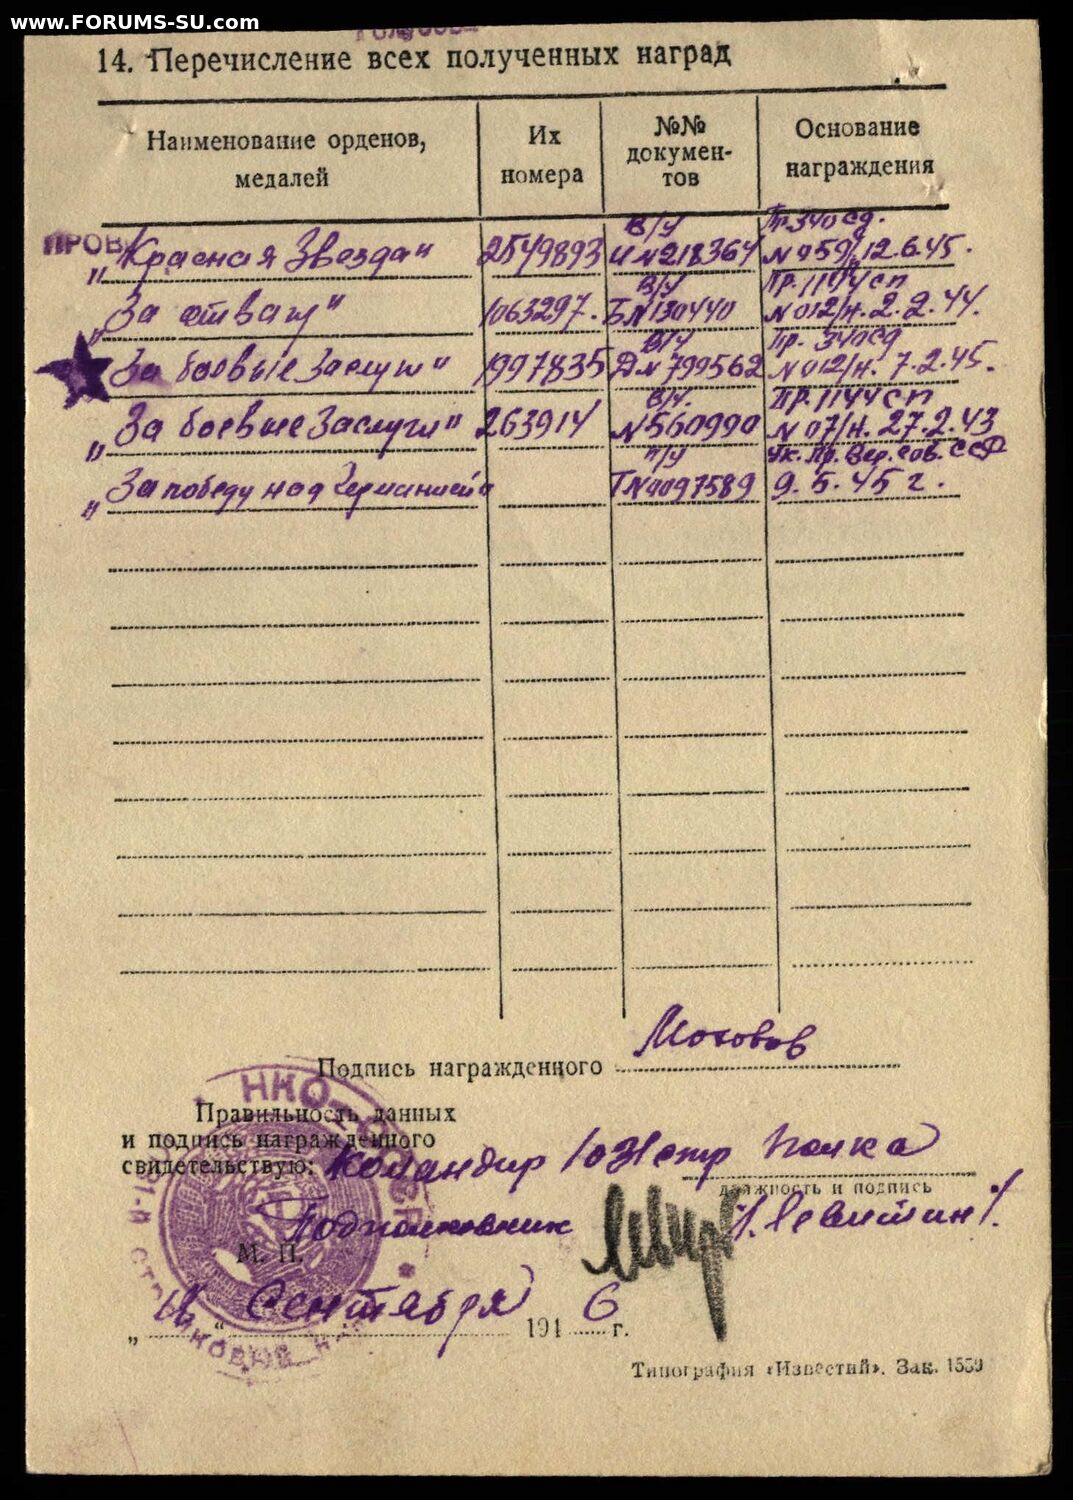 www.FORUMS-SU.com
14. Перечисление всех полученных наград
Наименование орденов, медалей
Их номера
№№ докумен-тов
Основание награждения
ПРОВ
„Красная Звезда" 2549893 В/У И№218364 Пр. 340 сд. №059/ 12.6.45.
„За отвагу" 1063297. В/У Б№130440 Пр. 1144 сп №012/н. 2.2.44.
„За боевые заслуги" 1997835 В/У Д№799562 Пр. 340 сд №012/н. 7.2.45.
„За боевые заслуги" 263914 В/У. №560990 Пр. 1144 сп №07/н. 27.2.43
„За победу над Германией" П/У Г№0097589 Ук. Пр. Вер. Сов. ССР 9.5.45 г.
Подпись награжденного
Правильность данных
и подпись награжденного
свидетельствую: Командир 1031 стр полка
должность и подпись
Подполковник /Левитин/.
М. П.
„ " Сентября 194 6 г.
НКО
Типография «Известий». Зак. 1559